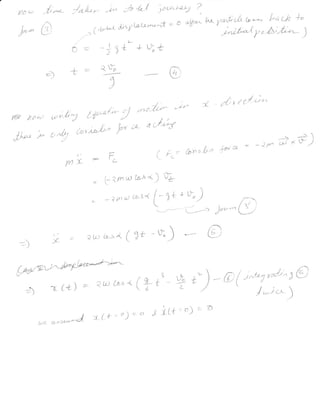 now time taken in total journey?
from ① (total displacement = 0 after the particle comes back to
initial position)
0 = -½ g t² + v₀ t
⇒ t = 2v₀/g — ④
now writing equation of motion in x-direction
there is only coriolis force acting
mẍ = F_c (F_c = coriolis force = -2m ω⃗ × v⃗)
= (-2mω cos α) v_z
= -2mω cos α (-gt + v₀)
from ③
⇒ ẍ = 2ω cos α (gt - v₀) — ⑤
⇒ x(t) = 2ω cos α (g/6 t³ - v₀/2 t²) — ⑥ (integrating ⑤
twice)
assumed x(t=0)=0 & ẋ(t=0) = 0